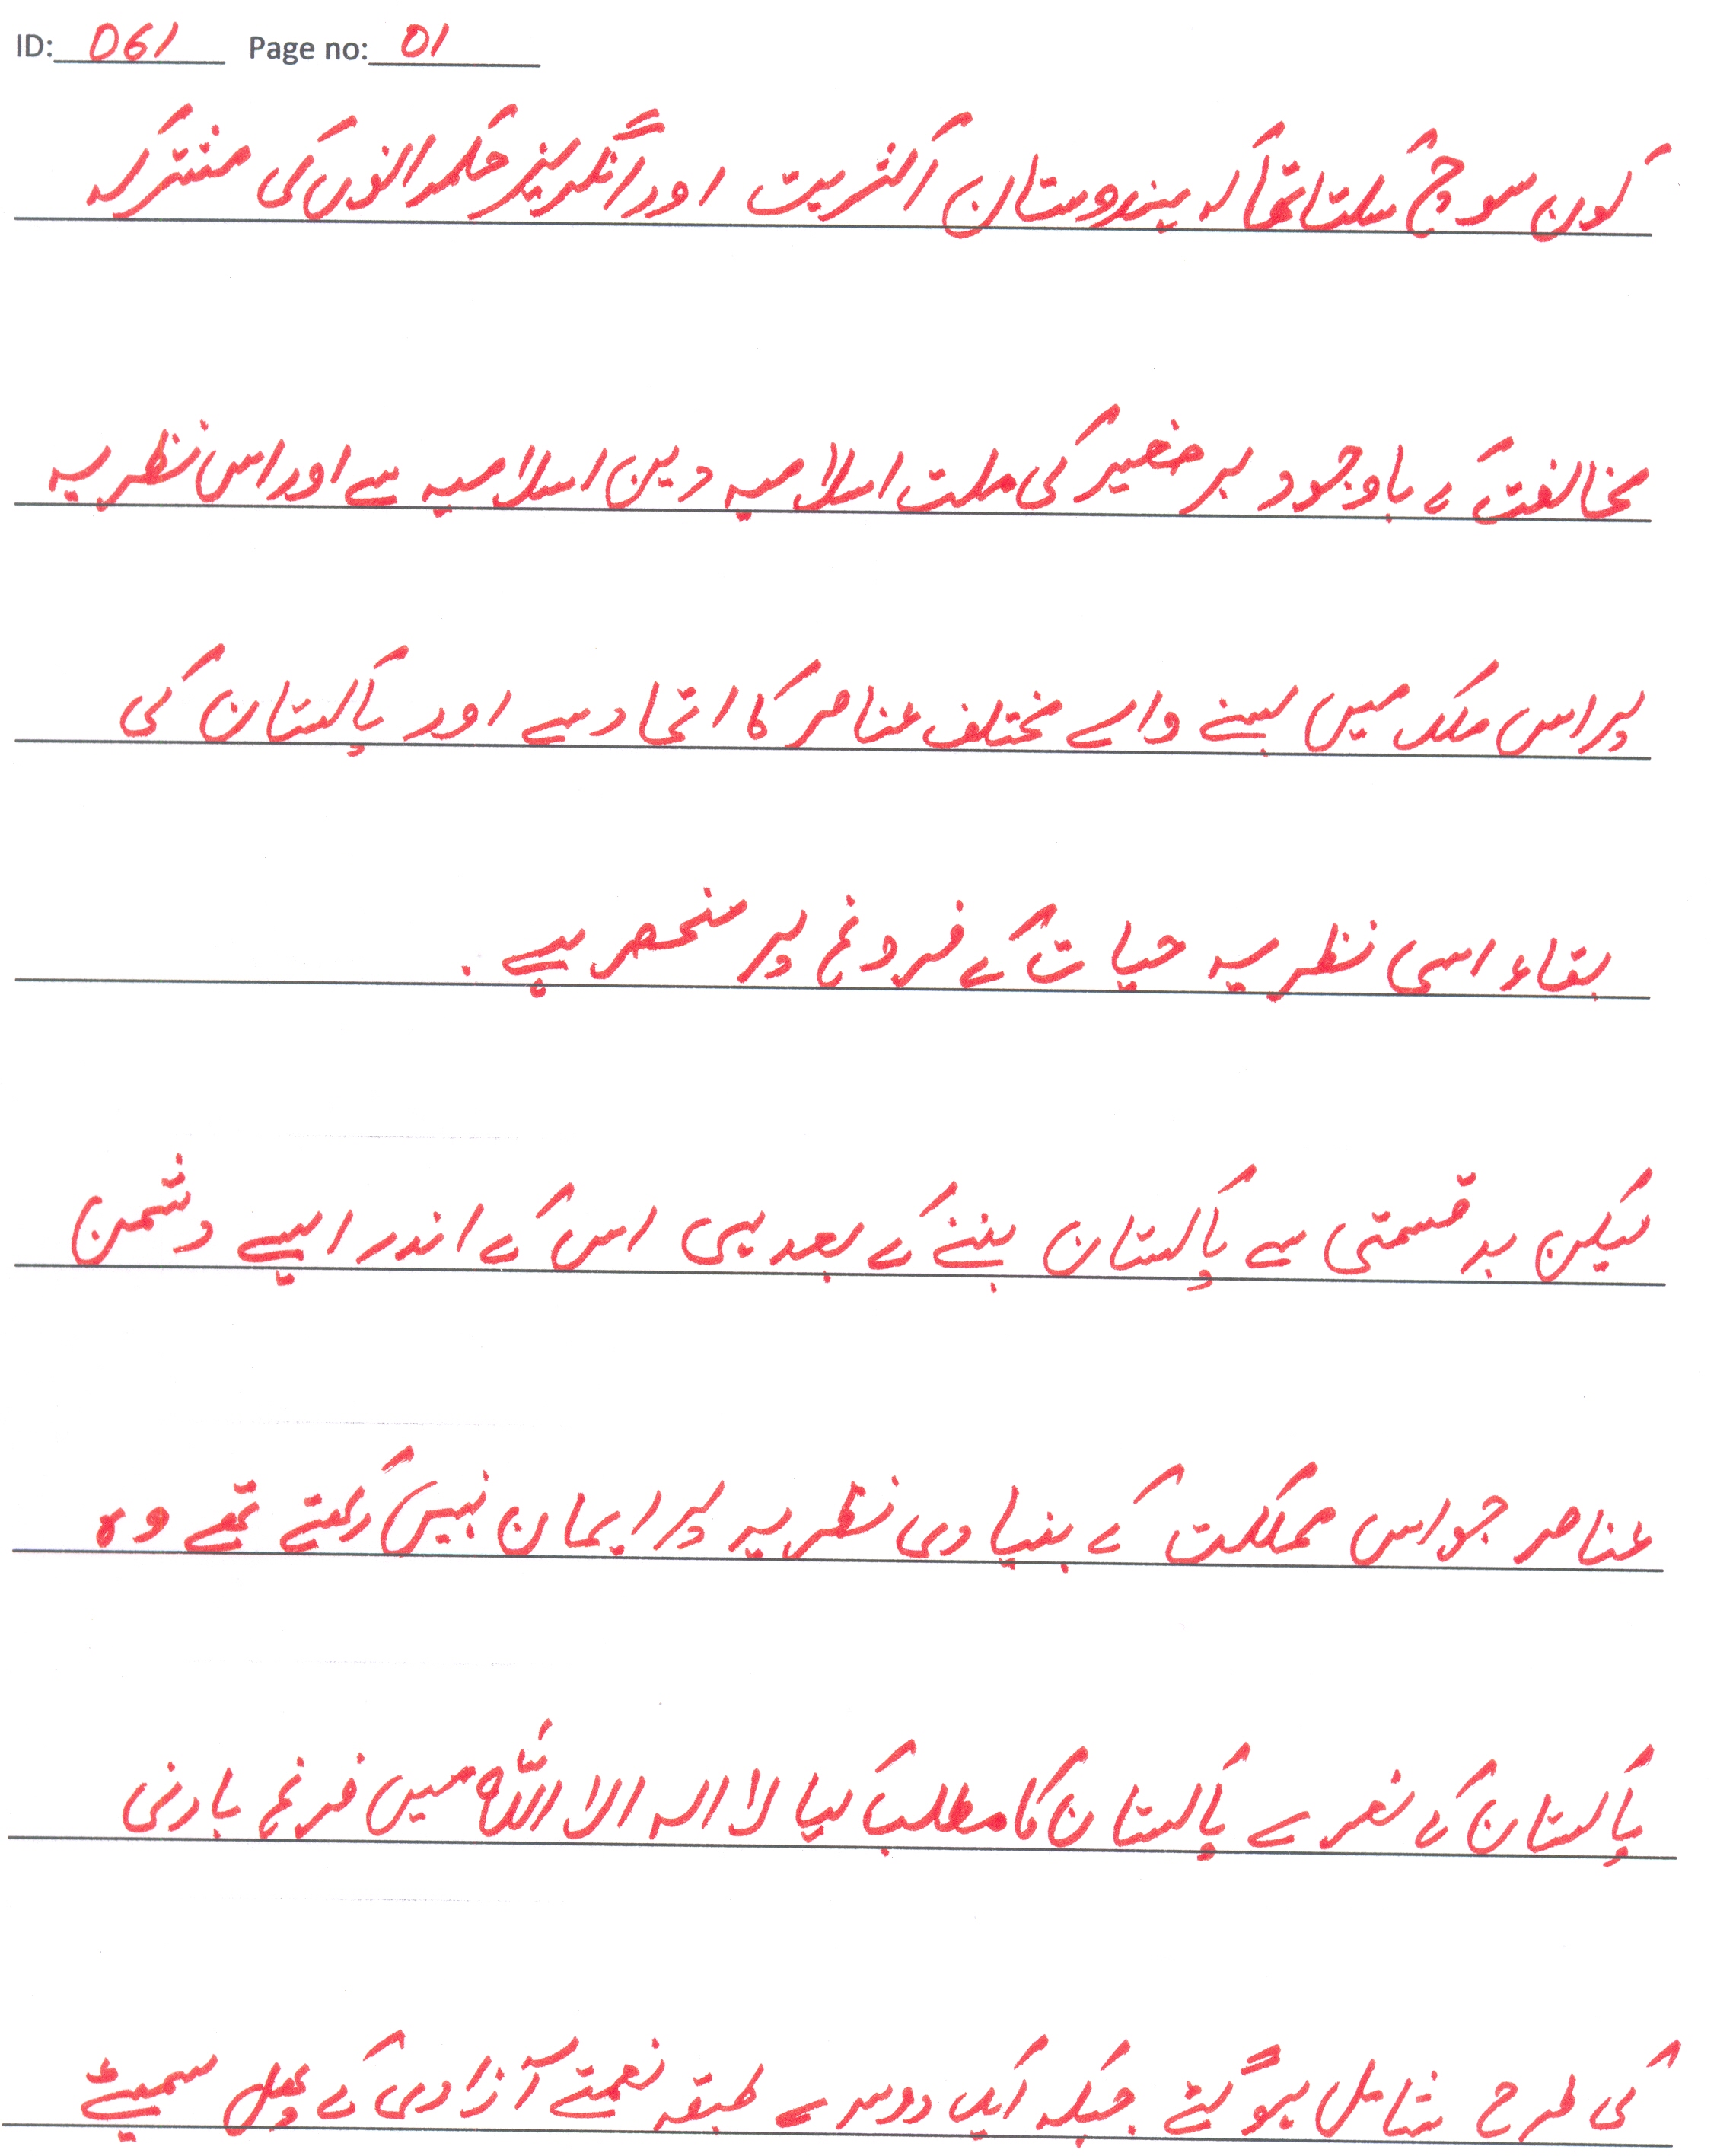 ID: 061 Page no: 01
کون سوچ سکتا تھا کہ ہندوستان اکثریت اور انگریز حکمرانوں کی مشترکہ
مخالفت کے باوجود برصغیر کی ملت اسلامیہ دین اسلامیہ ہے اور اس نظریہ
پر اس ملک میں بسنے والے مختلف عناصر کا اتحاد ہے اور پاکستان کی
بقاء اسی نظریہ حیات کے فروغ پر منحصر ہے۔
لیکن بدقسمتی سے پاکستان بننے کے بعد ہی اس کے اندر ایسے دشمن
عناصر جو اس مملکت کے بنیادی نظریہ پر ایمان نہیں رکھتے تھے وہ
پاکستان کے نعرے پاکستان کا مطلب کیا لا الہ الا اللہ میں فرنچ بارنی
کی طرح شامل ہوگئے جبکہ ایک دوسرے طبقہ نعمتے آزادی کے پھل سمیٹے